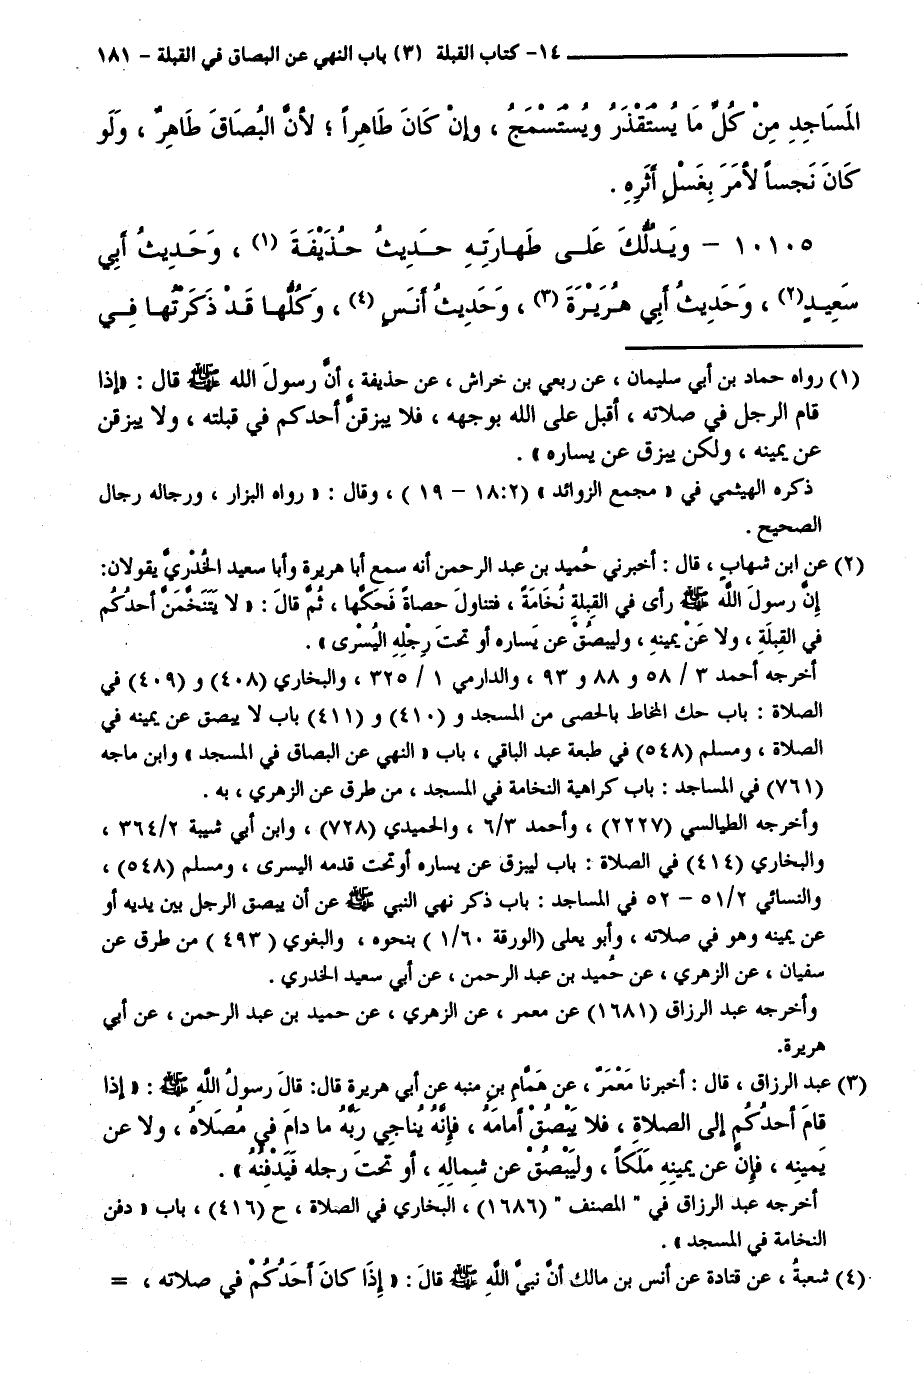 ١٤- كتاب القبلة (٣) باب النهي عن البصاق في القبلة - ١٨١
المَسَاجِدِ مِنْ كُلِّ مَا يُسْتَقْذَرُ ويُسْتَسْمَجُ ، وإنْ كَانَ طَاهِراً ؛ لأنَّ البُصَاقَ طَاهِرٌ ، ولَو
كَانَ نَجساً لأمَرَ بِغَسْلِ أثَرِهِ .
١٠١٠٥ - ويَدُلُّكَ عَلَى طَهارَتِه حَدِيثُ حُذَيْفَةَ (١) ، وَحَدِيثُ أبِي
سَعِيدٍ(٢) ، وَحَدِيثُ أبِي هُرَيْرَةَ (٣) ، وَحَدِيثُ أنَسٍ (٤) ، وَكُلُّها قَدْ ذَكَرْتُها فِي
(١) رواه حماد بن أبي سليمان ، عن ربعي بن خراش ، عن حذيفة ، أنَّ رسولَ الله ﷺ قال : «إذا
قام الرجل في صلاته ، أقبل على الله بوجهه ، فلا يبزقنَّ أحدكم في قبلته ، ولا يبزقن
عن يمينه ، ولكن يبزق عن يساره» .
ذكره الهيثمي في « مجمع الزوائد » (١٨:٢ - ١٩ ) ، وقال : « رواه البزار ، ورجاله رجال
الصحيح .
(٢) عن ابن شهابٍ ، قال : أخبرني حُميد بن عبد الرحمن أنه سمع أبا هريرة وأبا سعيد الخُدْريَّ يقولان:
إنَّ رسولَ اللَّه ﷺ رأى في القِبلةِ نُخَامَةً ، فتناولَ حصاةً فَحكَّها ، ثُمَّ قالَ : « لا يَتَنَخَّمَنَّ أحدُكُم
في القِبلَةِ ، ولا عَنْ يمينِهِ ، وليبصُقْ عن يَساره أو تحتَ رِجْلِهِ اليُسْرى » .
أخرجه أحمد ٣ / ٥٨ و ٨٨ و ٩٣ ، والدارمي ١ / ٣٢٥ ، والبخاري (٤٠٨) و (٤٠٩) في
الصلاة : باب حك المخاط بالحصى من المسجد و (٤١٠) و (٤١١) باب لا يبصق عن يمينه في
الصلاة ، ومسلم (٥٤٨) في طبعة عبد الباقي ، باب « النهي عن البصاق في المسجد » وابن ماجه
(٧٦١) في المساجد : باب كراهية النخامة في المسجد ، من طرق عن الزهري ، به .
وأخرجه الطيالسي (٢٢٢٧) ، وأحمد ٦/٣ ، والحميدي (٧٢٨) ، وابن أبي شيبة ٣٦٤/٢ ،
والبخاري (٤١٤) في الصلاة : باب ليبزق عن يساره أوتحت قدمه اليسرى ، ومسلم (٥٤٨) ،
والنسائي ٥١/٢ - ٥٢ في المساجد : باب ذكر نهي النبي ﷺ عن أن يبصق الرجل بين يديه أو
عن يمينه وهو في صلاته ، وأبو يعلى (الورقة ١/٦٠ ) بنحوه ، والبغوي ( ٤٩٣ ) من طرق عن
سفيان ، عن الزهري ، عن حُميد بن عبد الرحمن ، عن أبي سعيد الخدري .
وأخرجه عبد الرزاق (١٦٨١) عن معمر ، عن الزهري ، عن حميد بن عبد الرحمن ، عن أبي
هريرة.
(٣) عبد الرزاق ، قال : أخبرنا مَعْمَرٌ ، عن هَمَّامِ بنِ منبه عن أبي هريرة قال: قالَ رسولُ اللَّهِ ﷺ : « إذا
قامَ أحدُكُم إلى الصلاةِ ، فلا يَبْصُقْ أمامَهُ ، فإنَّهُ يُناجي ربَّهُ ما دامَ في مُصَلاهُ ، ولا عن
يَمينِه ، فإنَّ عن يمينِهِ مَلَكاً ، وليَبْصُقْ عن شمالِهِ ، أو تحتَ رجله فَيَدْفنُهُ » .
أخرجه عبد الرزاق في " المصنف " (١٦٨٦) ، البخاري في الصلاة ، ح (٤١٦) ، باب « دفن
النخامة في المسجد » .
(٤) شعبةُ ، عن قتادة عن أنس بن مالك أنَّ نبيَّ اللَّهِ ﷺ قالَ : « إذَا كانَ أحَدُكُمْ في صلاته ، =